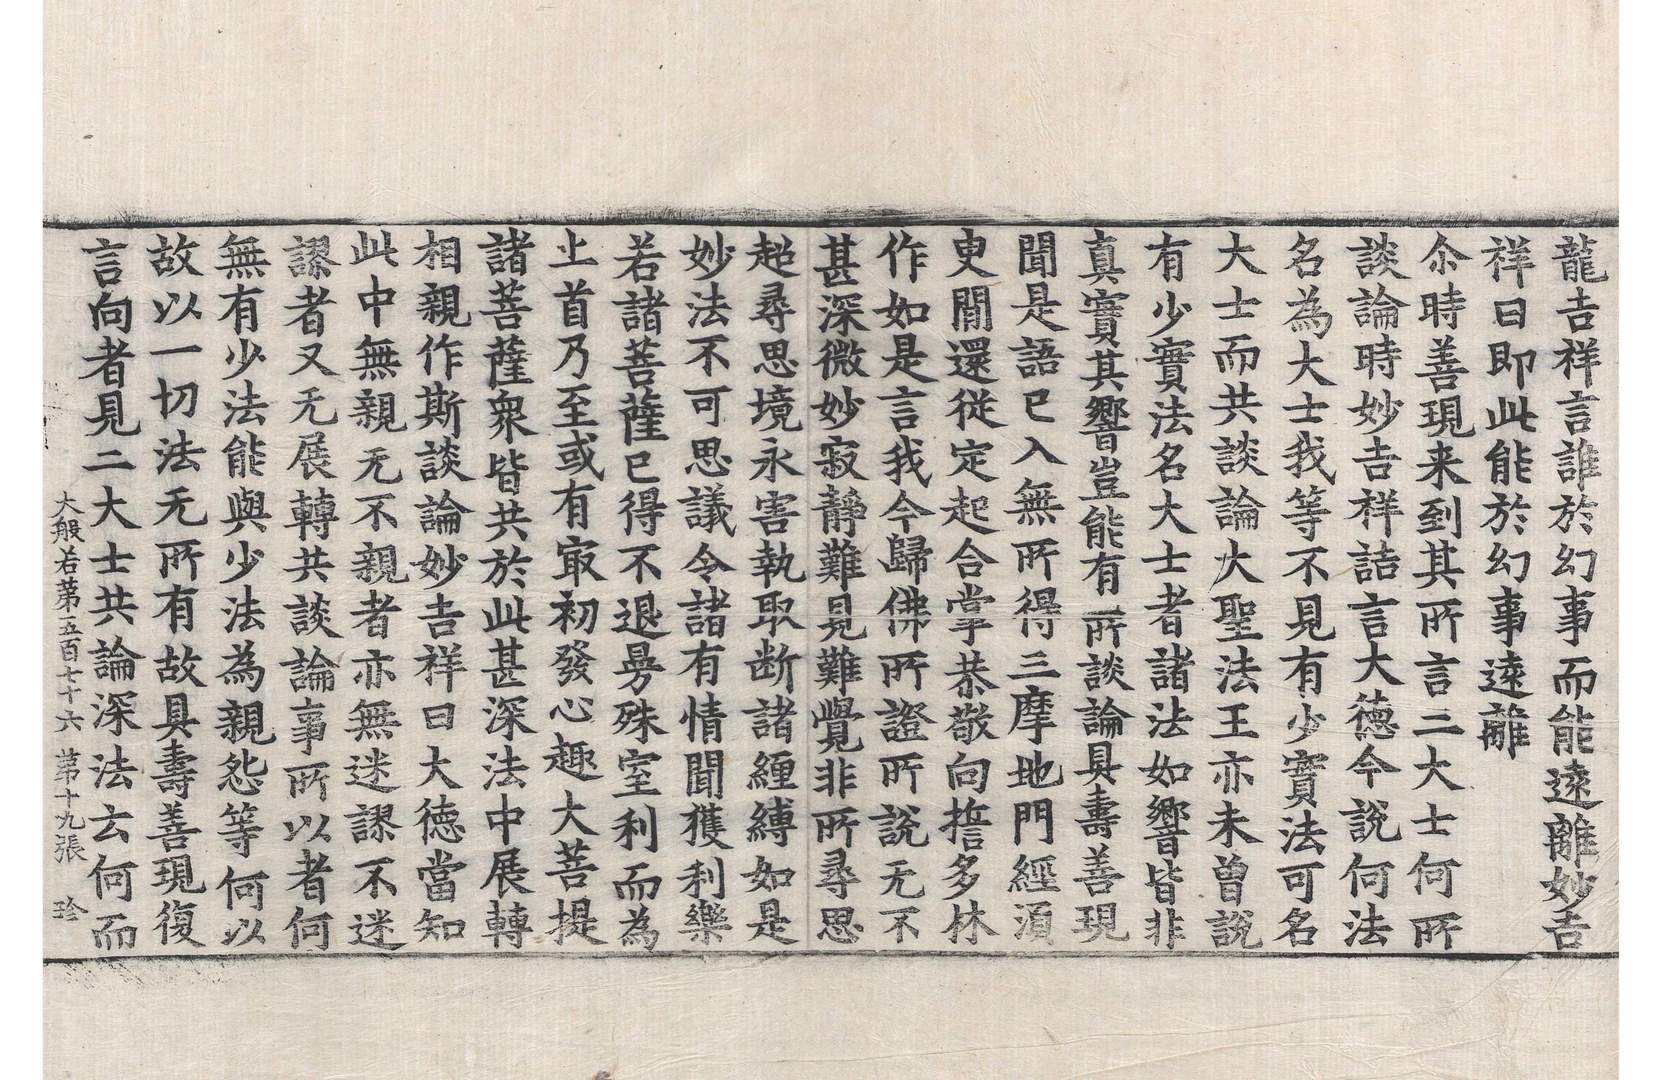 龍吉祥言誰於幻事而能遠離妙吉
祥曰即此能於幻事遠離
尒時善現来到其所言二大士何所
談論時妙吉祥詰言大德今說何法
名為大士我等不見有少實法可名
大士而共談論大聖法王亦未曾說
有少實法名大士者諸法如響皆非
真實其響豈能有所談論具壽善現
聞是語已入無所得三摩地門經須
臾閒還從定起合掌恭敬向誓多林
作如是言我今歸佛所證所說无不
甚深微妙寂靜難見難覺非所尋思
超尋思境永害執取断諸纏縛如是
妙法不可思議令諸有情聞獲利樂
若諸菩薩已得不退曼殊室利而為
上首乃至或有㝡初發心趣大菩提
諸菩薩衆皆共於此甚深法中展轉
相親作斯談論妙吉祥曰大德當知
此中無親无不親者亦無迷謬不迷
謬者又无展轉共談論事所以者何
無有少法能與少法為親怨等何以
故以一切法无所有故具壽善現復
言向者見二大士共論深法云何而
大般若苐五百七十六 苐十九張 珍